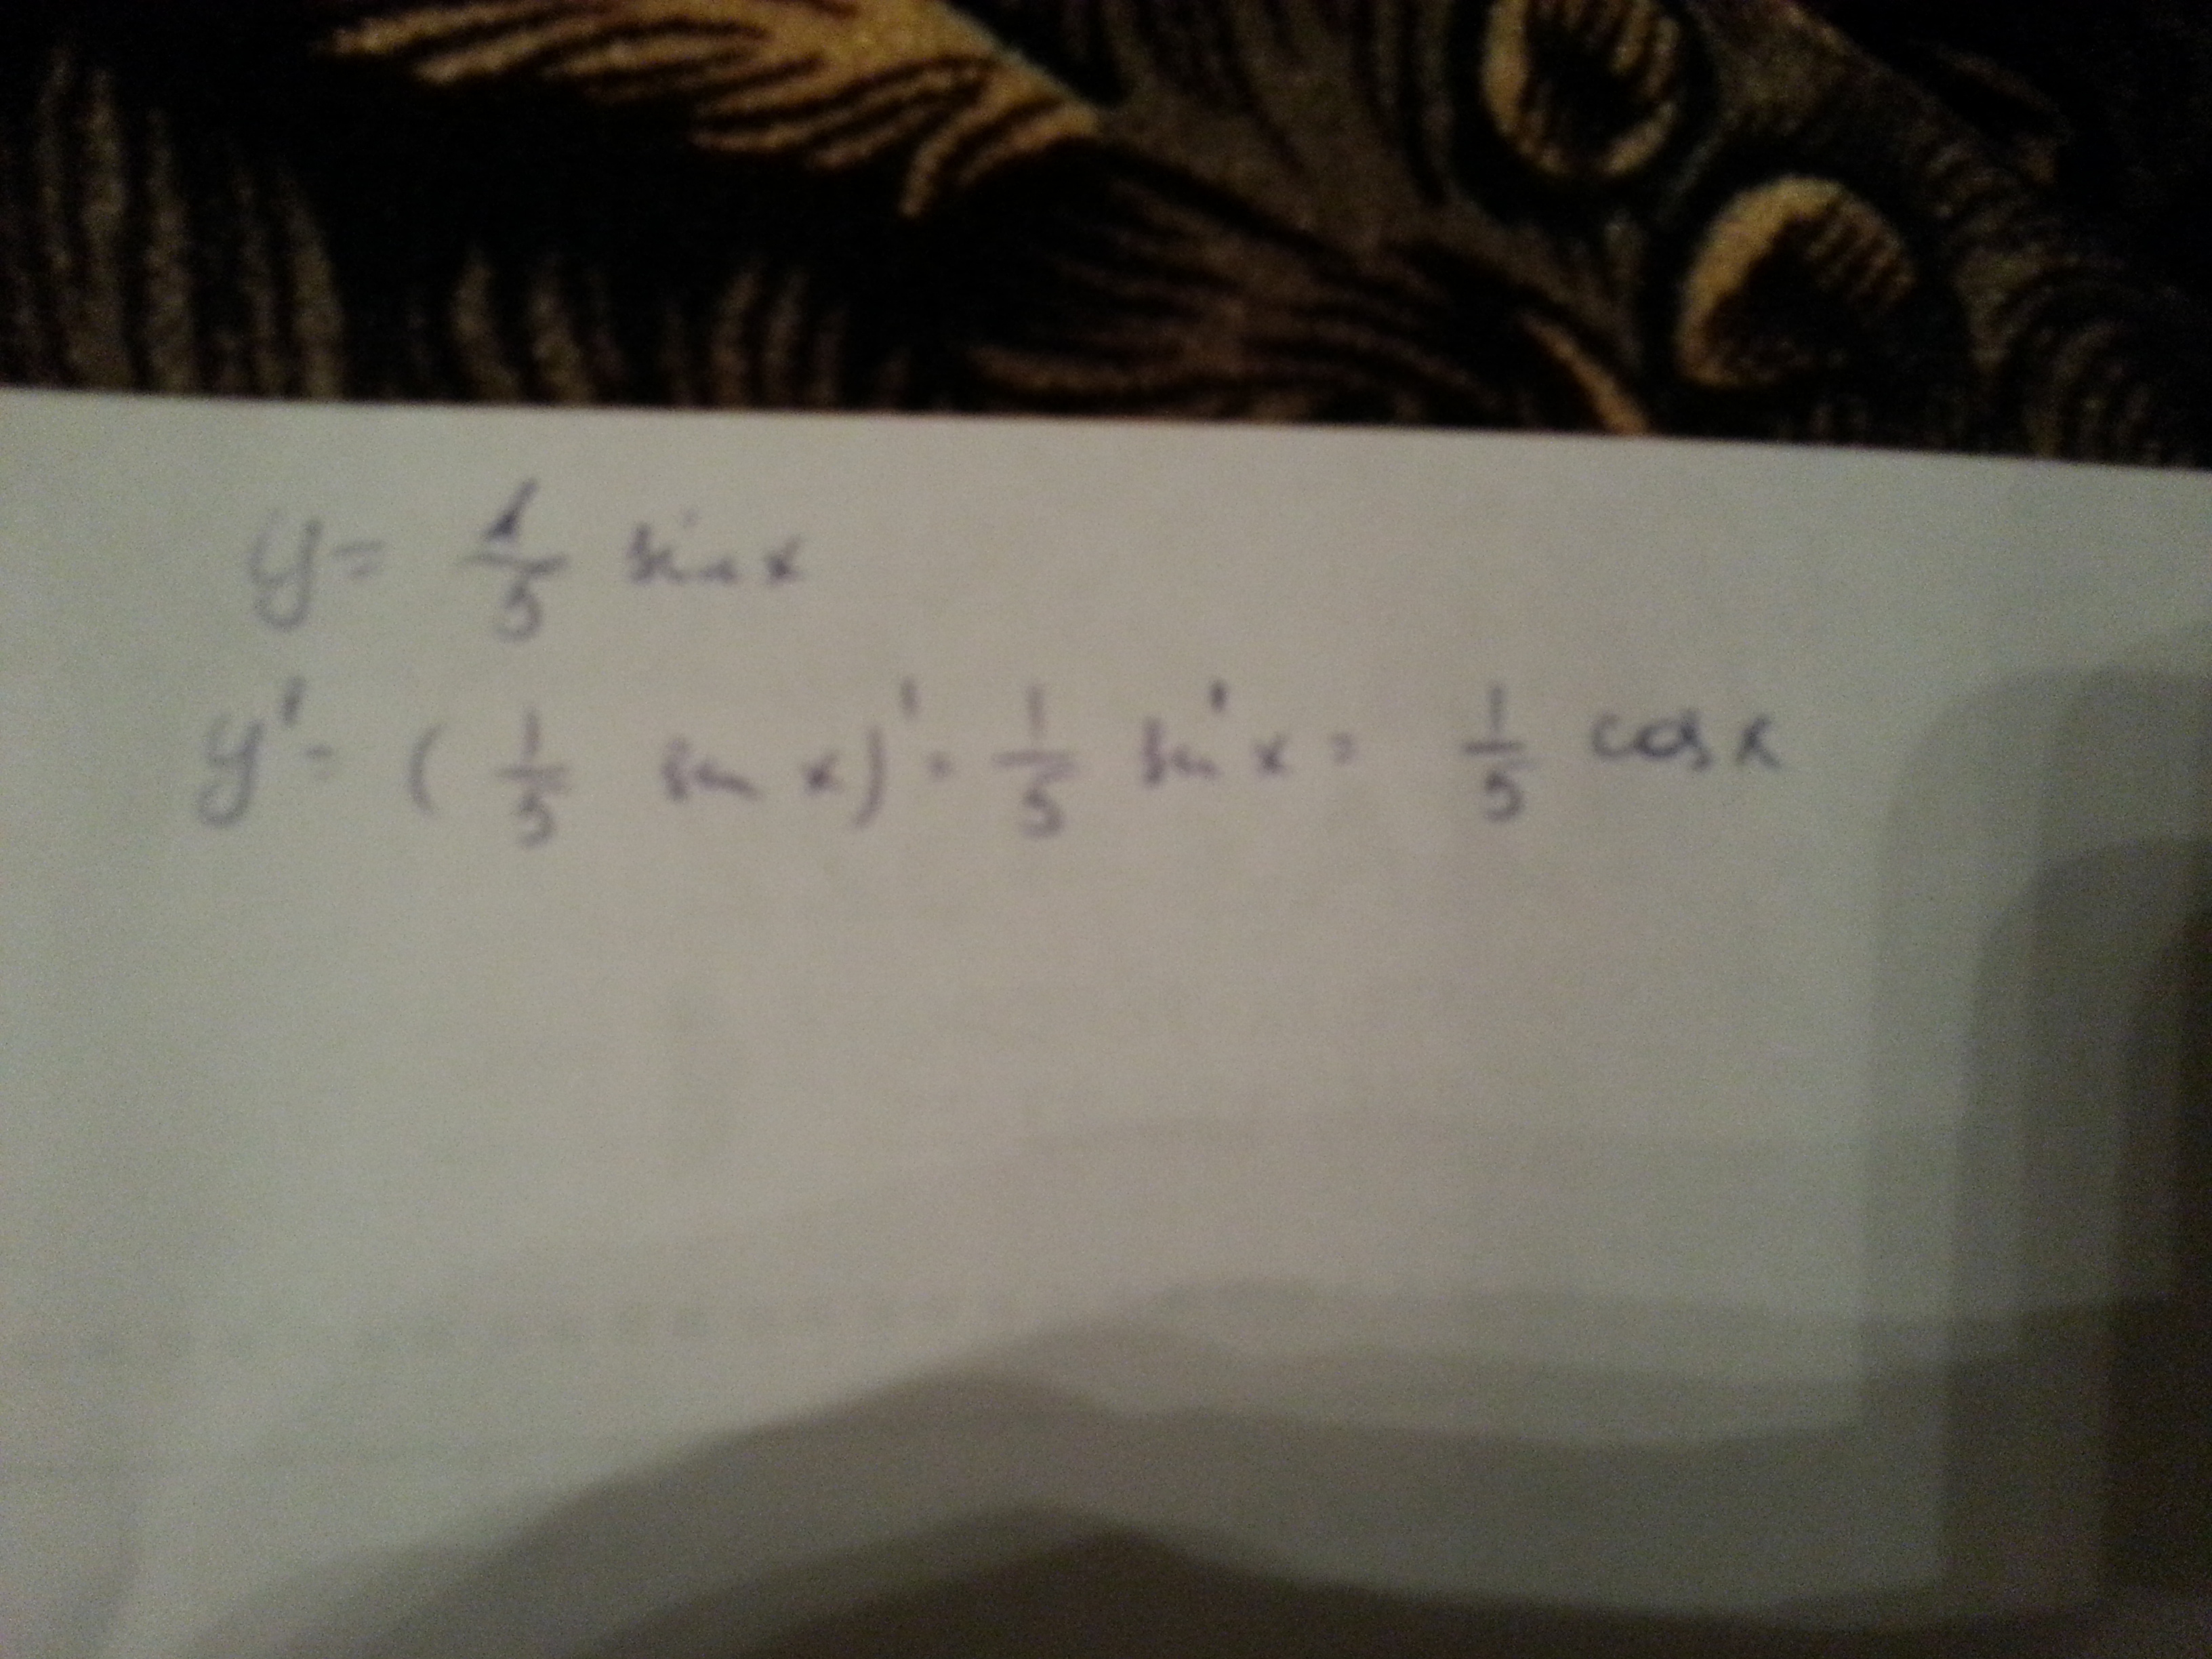 y = 1/5 sin x
y' = ( 1/5 sin x)' = 1/5 sin' x = 1/5 cos x